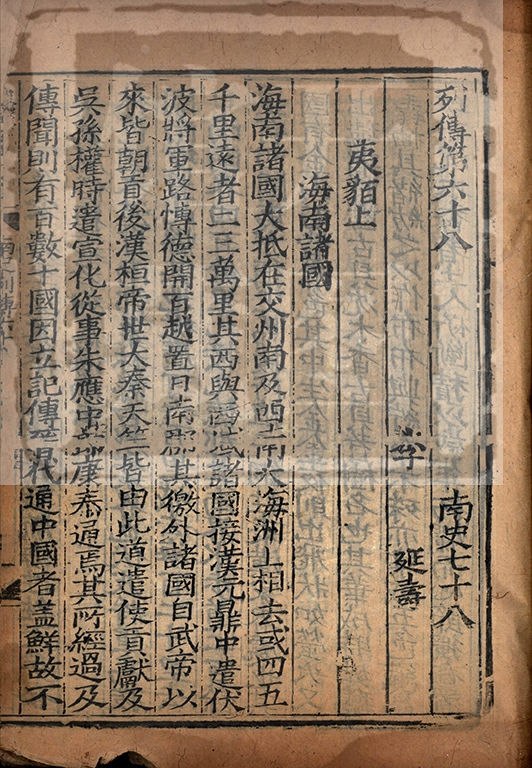 列傳第六十八 南史七十八
李 延壽
夷貊上
海南諸國
海南諸國大抵在交州南及西南大海洲上相去或四五
千里遠者二三萬里其西與西域諸國接漢元鼎中遣伏
波將軍路愽德開百越置日南郡其徼外諸國自武帝以
來皆朝貢後漢桓帝世大秦天竺皆由此道遣使貢獻及
吳孫權時遣宣化從事朱應中郎康泰通焉其所經過及
傳聞則有百數十國因立記傳晉代通中國者蓋鮮故不